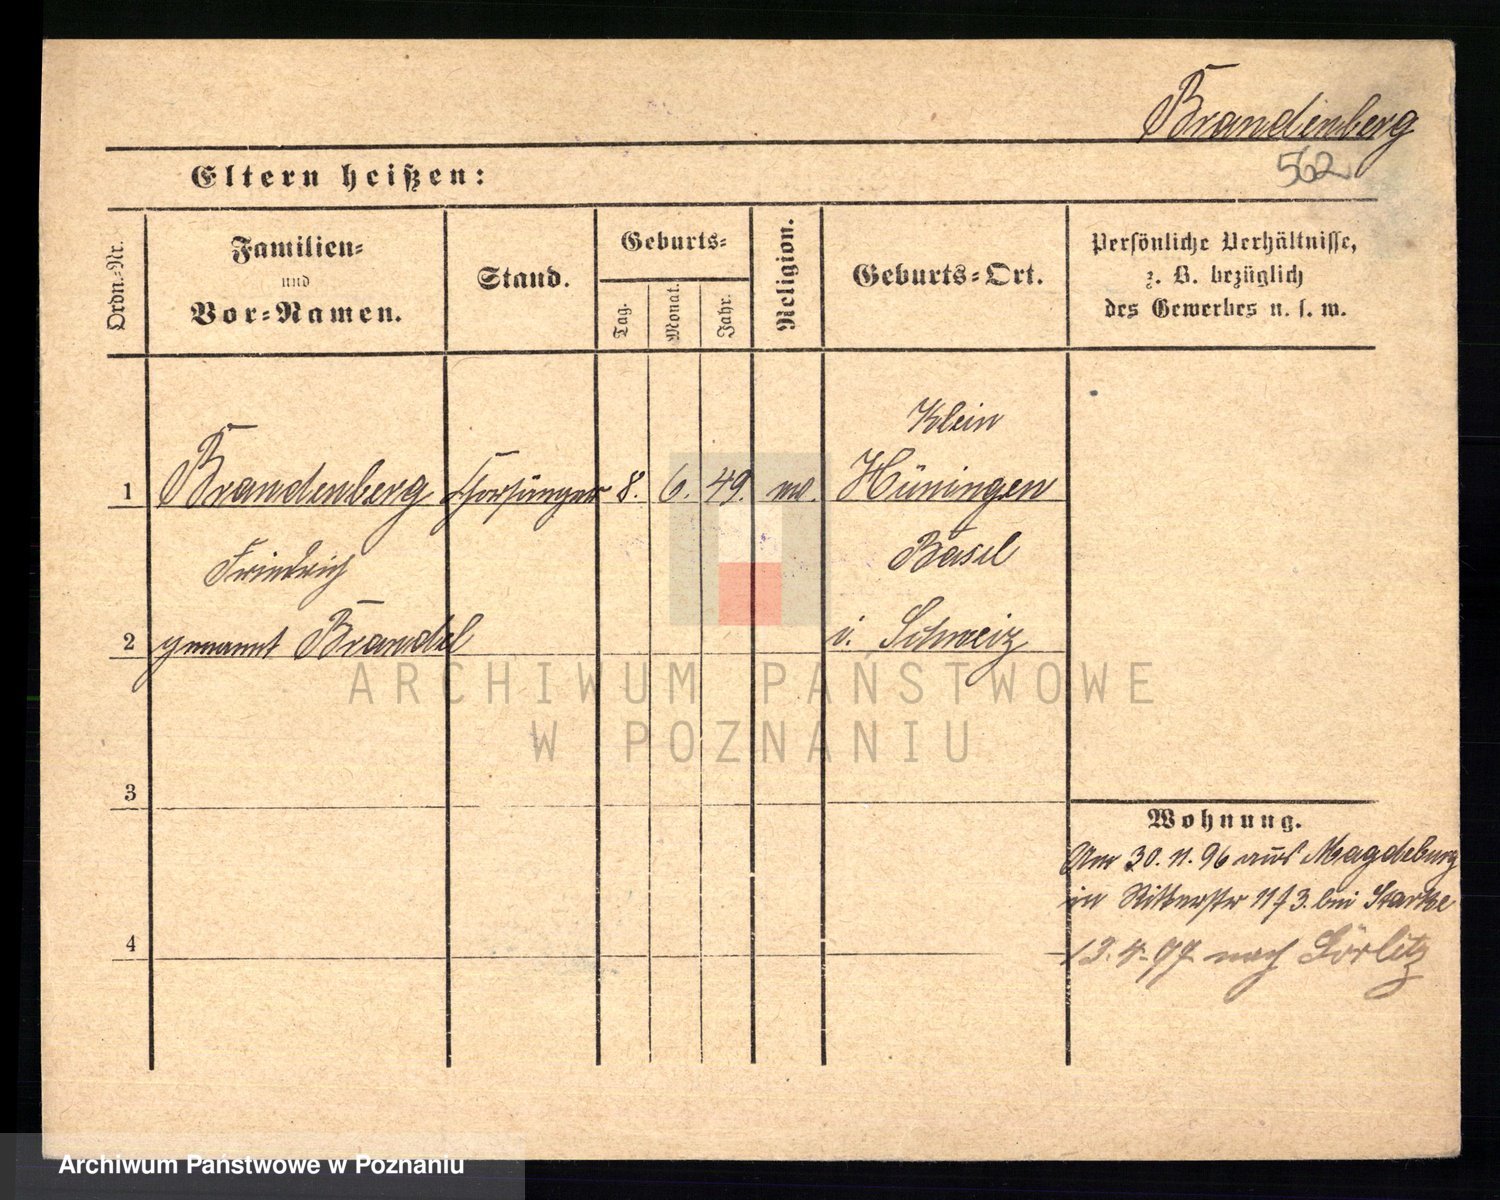 Brandenberg
562
Eltern heißen:
Ordn.-Nr.
Familien-
und
Vor-Namen.
Stand.
Geburts-
Tag.
Monat.
Jahr.
Religion.
Geburts-Ort.
Persönliche Verhältnisse,
z. B. bezüglich
des Gewerbes u. s. w.
Klein
1 Brandenberg Chorsänger 8. 6. 49. Hüningen
Friedrich Basel
2 genannt Brandel i. Schweiz
ARCHIWUM PAŃSTWOWE
W POZNANIU
3
Wohnung.
Am 30. 11. 96 aus Magdeburg
in Ritterstr 11 bei Starke
4
13. 4. 97 nach Görlitz
Archiwum Państwowe w Poznaniu